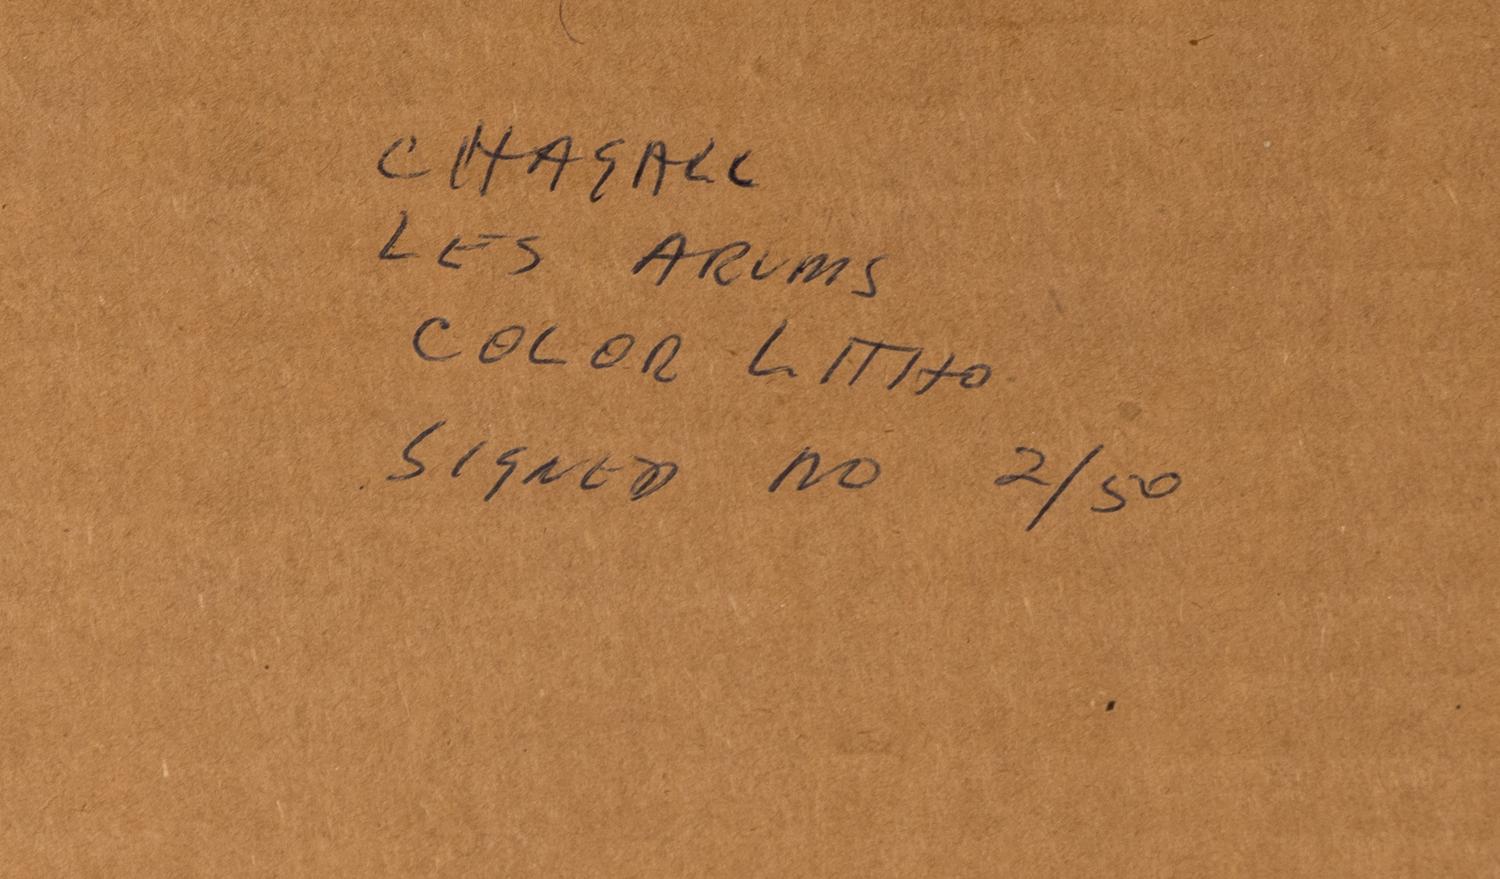 CHAGALL
LES ARUMS
COLOR LITHO
SIGNED NO 2/50